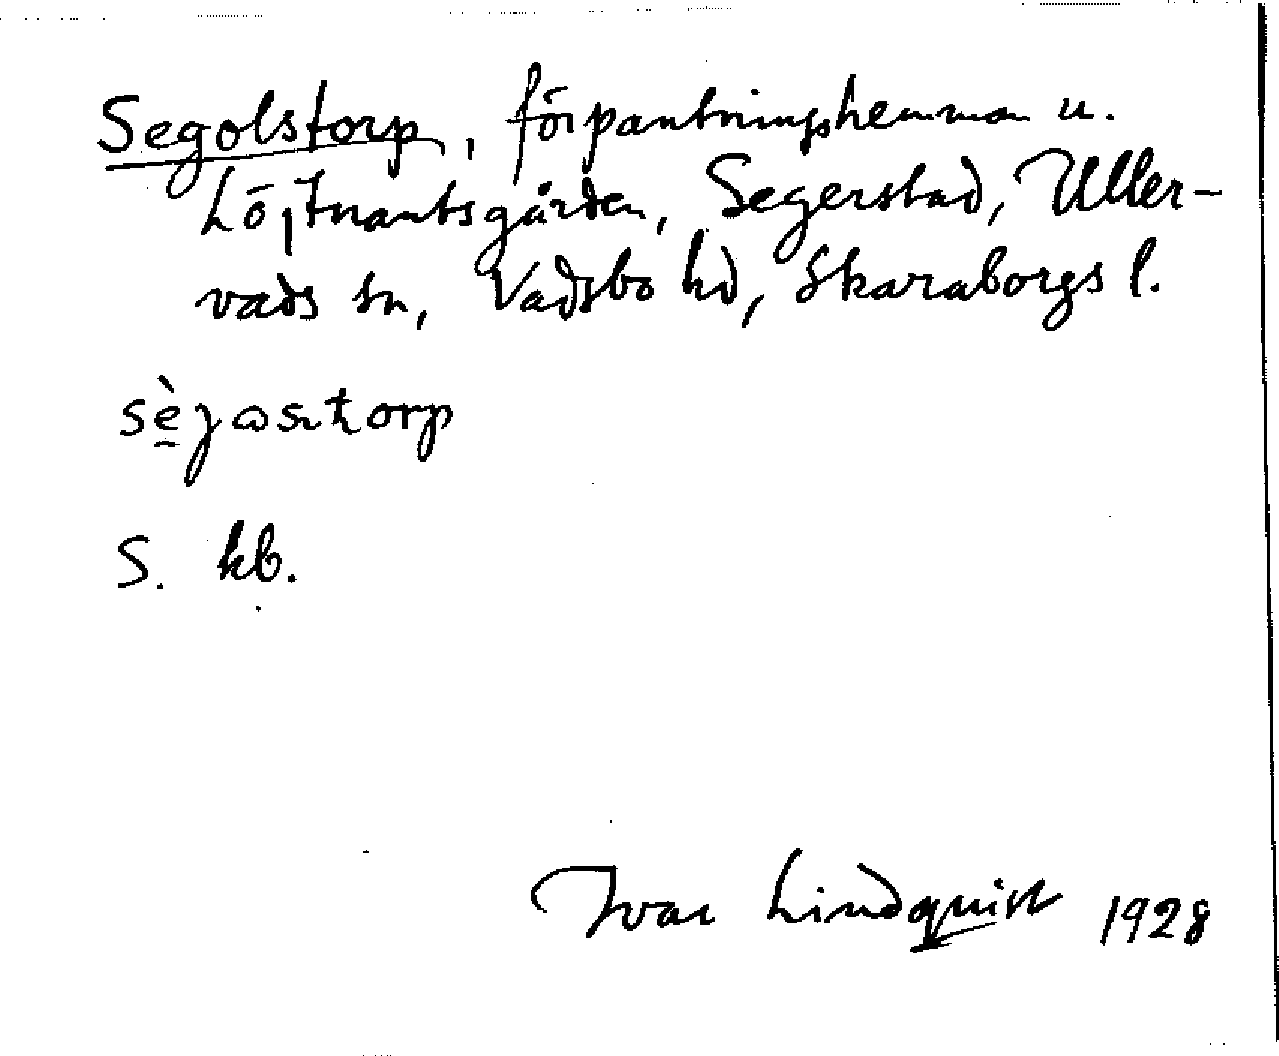 Segolstorp, förpantningshemman u.
Löjtnantsgården, Segerstad, Uller-
vads sn, Vadsbo hd, Skaraborgs l.
sè̱gωstorp
S. kb.
Ivar Lindquist 1928